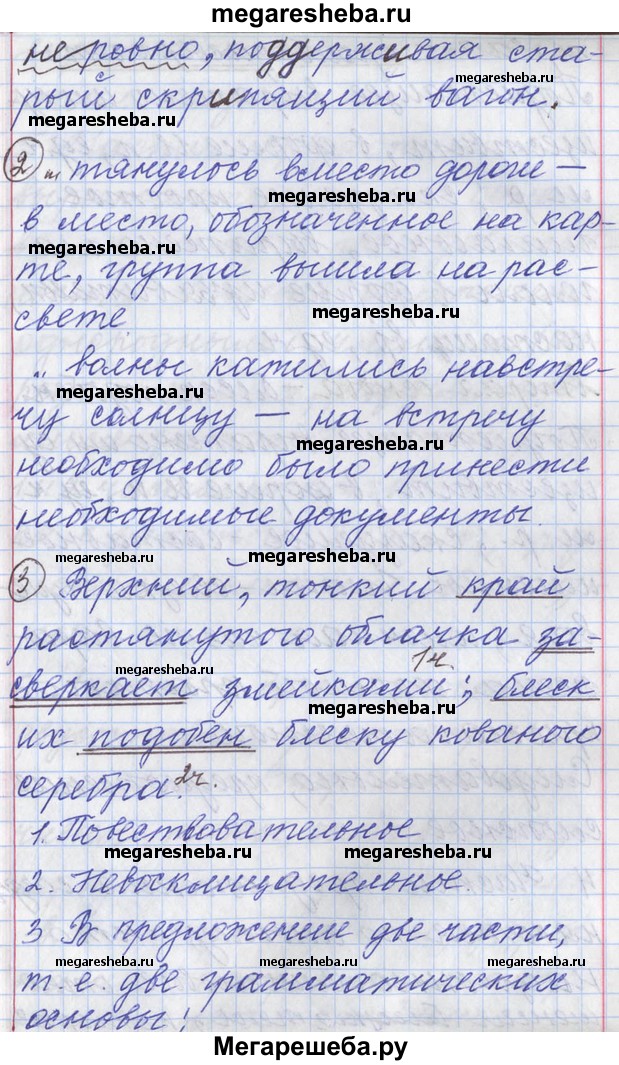 megaresheba.ru
неровно, поддерживая ста-
megaresheba.ru
рый скрипящий вагон.
megaresheba.ru
2 тянулось вместо дороги –
megaresheba.ru
в место, обозначенное на кар-
megaresheba.ru
те, группа вышла на рас-
megaresheba.ru
свете
.. волны катились навстре-
megaresheba.ru
чу солнцу – на встречу
megaresheba.ru
необходимо было принести
необходимые документы.
megaresheba.ru
megaresheba.ru
3 Верхний, тонкий край
megaresheba.ru
растянутого облачка за-
megaresheba.ru
1ч.
сверкает змейками; блеск
megaresheba.ru
их подобен блеску кованого
серебра. 2ч.
1. Повествовательное
megaresheba.ru megaresheba.ru
2. Невосклицательное.
megaresheba.ru
3 В предложении две части,
megaresheba.ru megaresheba.ru
т.е. две грамматических
megaresheba.ru
основы;
Мегарешеба.ру